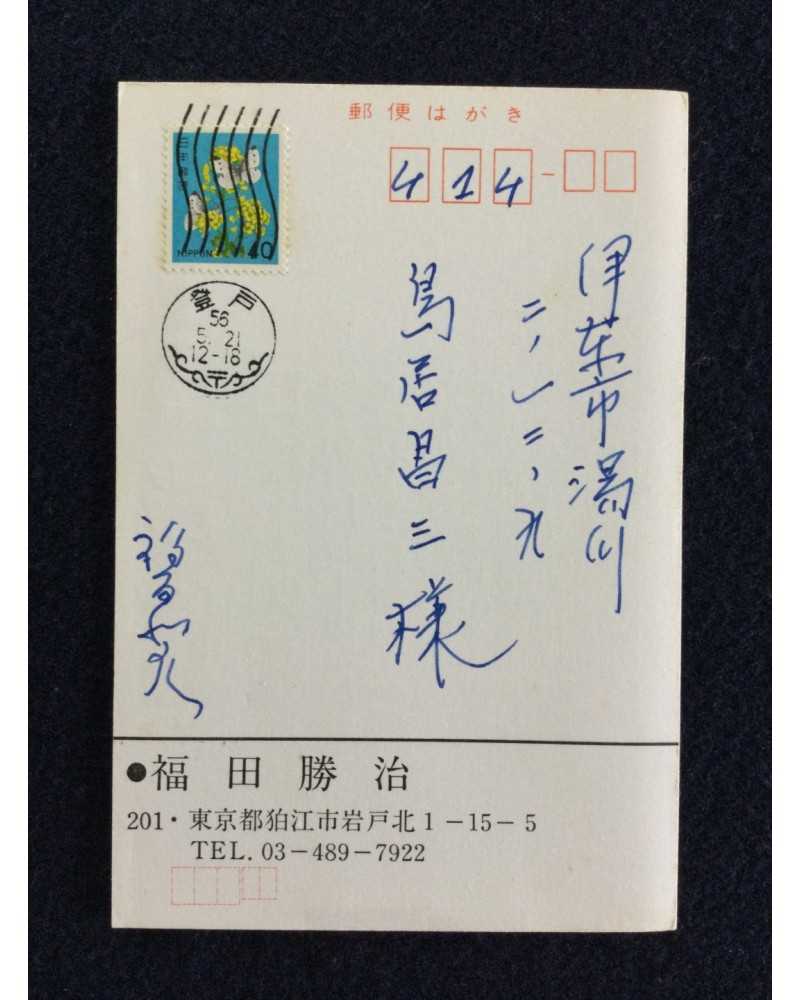 郵便はがき
414-
日本郵便
NIPPON 40
登戸
56
5. 21
12-18
伊東市湯川
二、一二、九
鳥居昌三様
●福田勝治
201・東京都狛江市岩戸北1-15-5
TEL. 03-489-7922